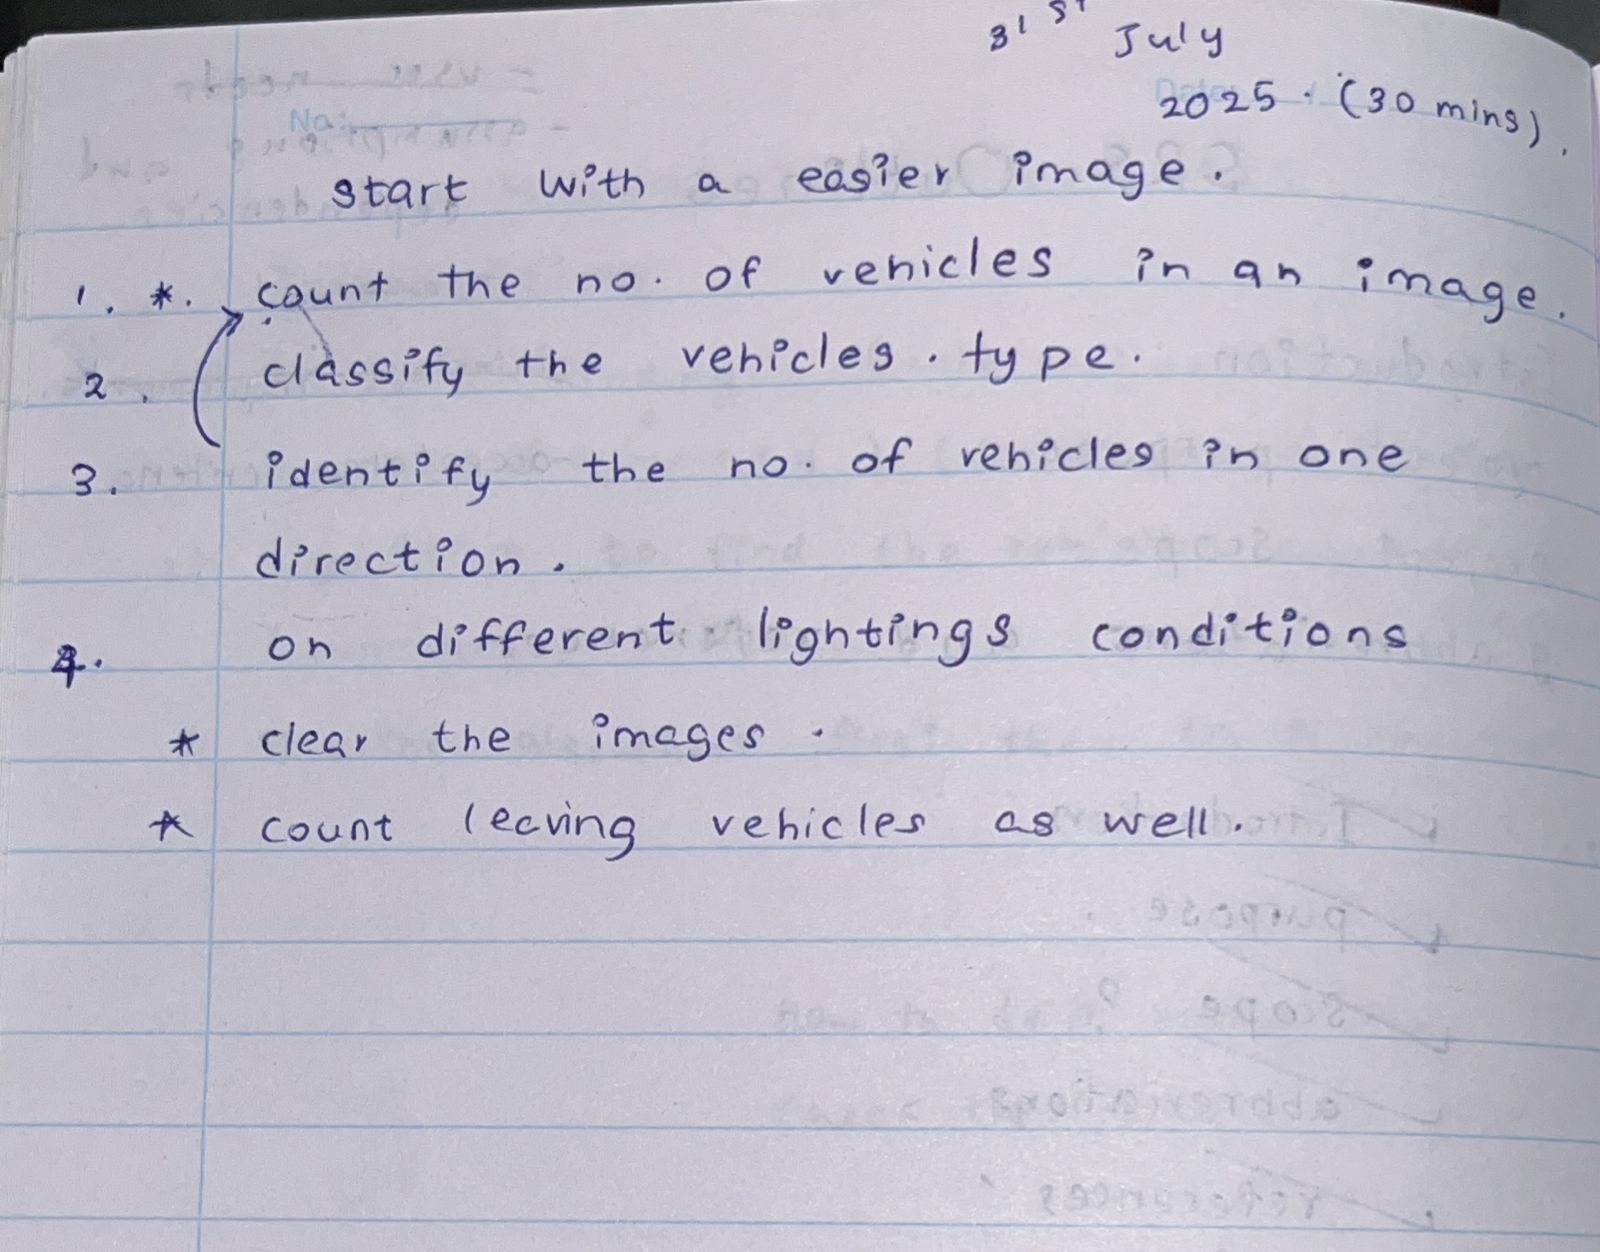 31st July
2025. (30 mins).
No:
start with a easier image.
1. *. count the no. of vehicles in an image.
2. classify the vehicles. type.
3. identify the no. of vehicles in one
direction.
4. on different lightings conditions
* clear the images.
* count leaving vehicles as well.